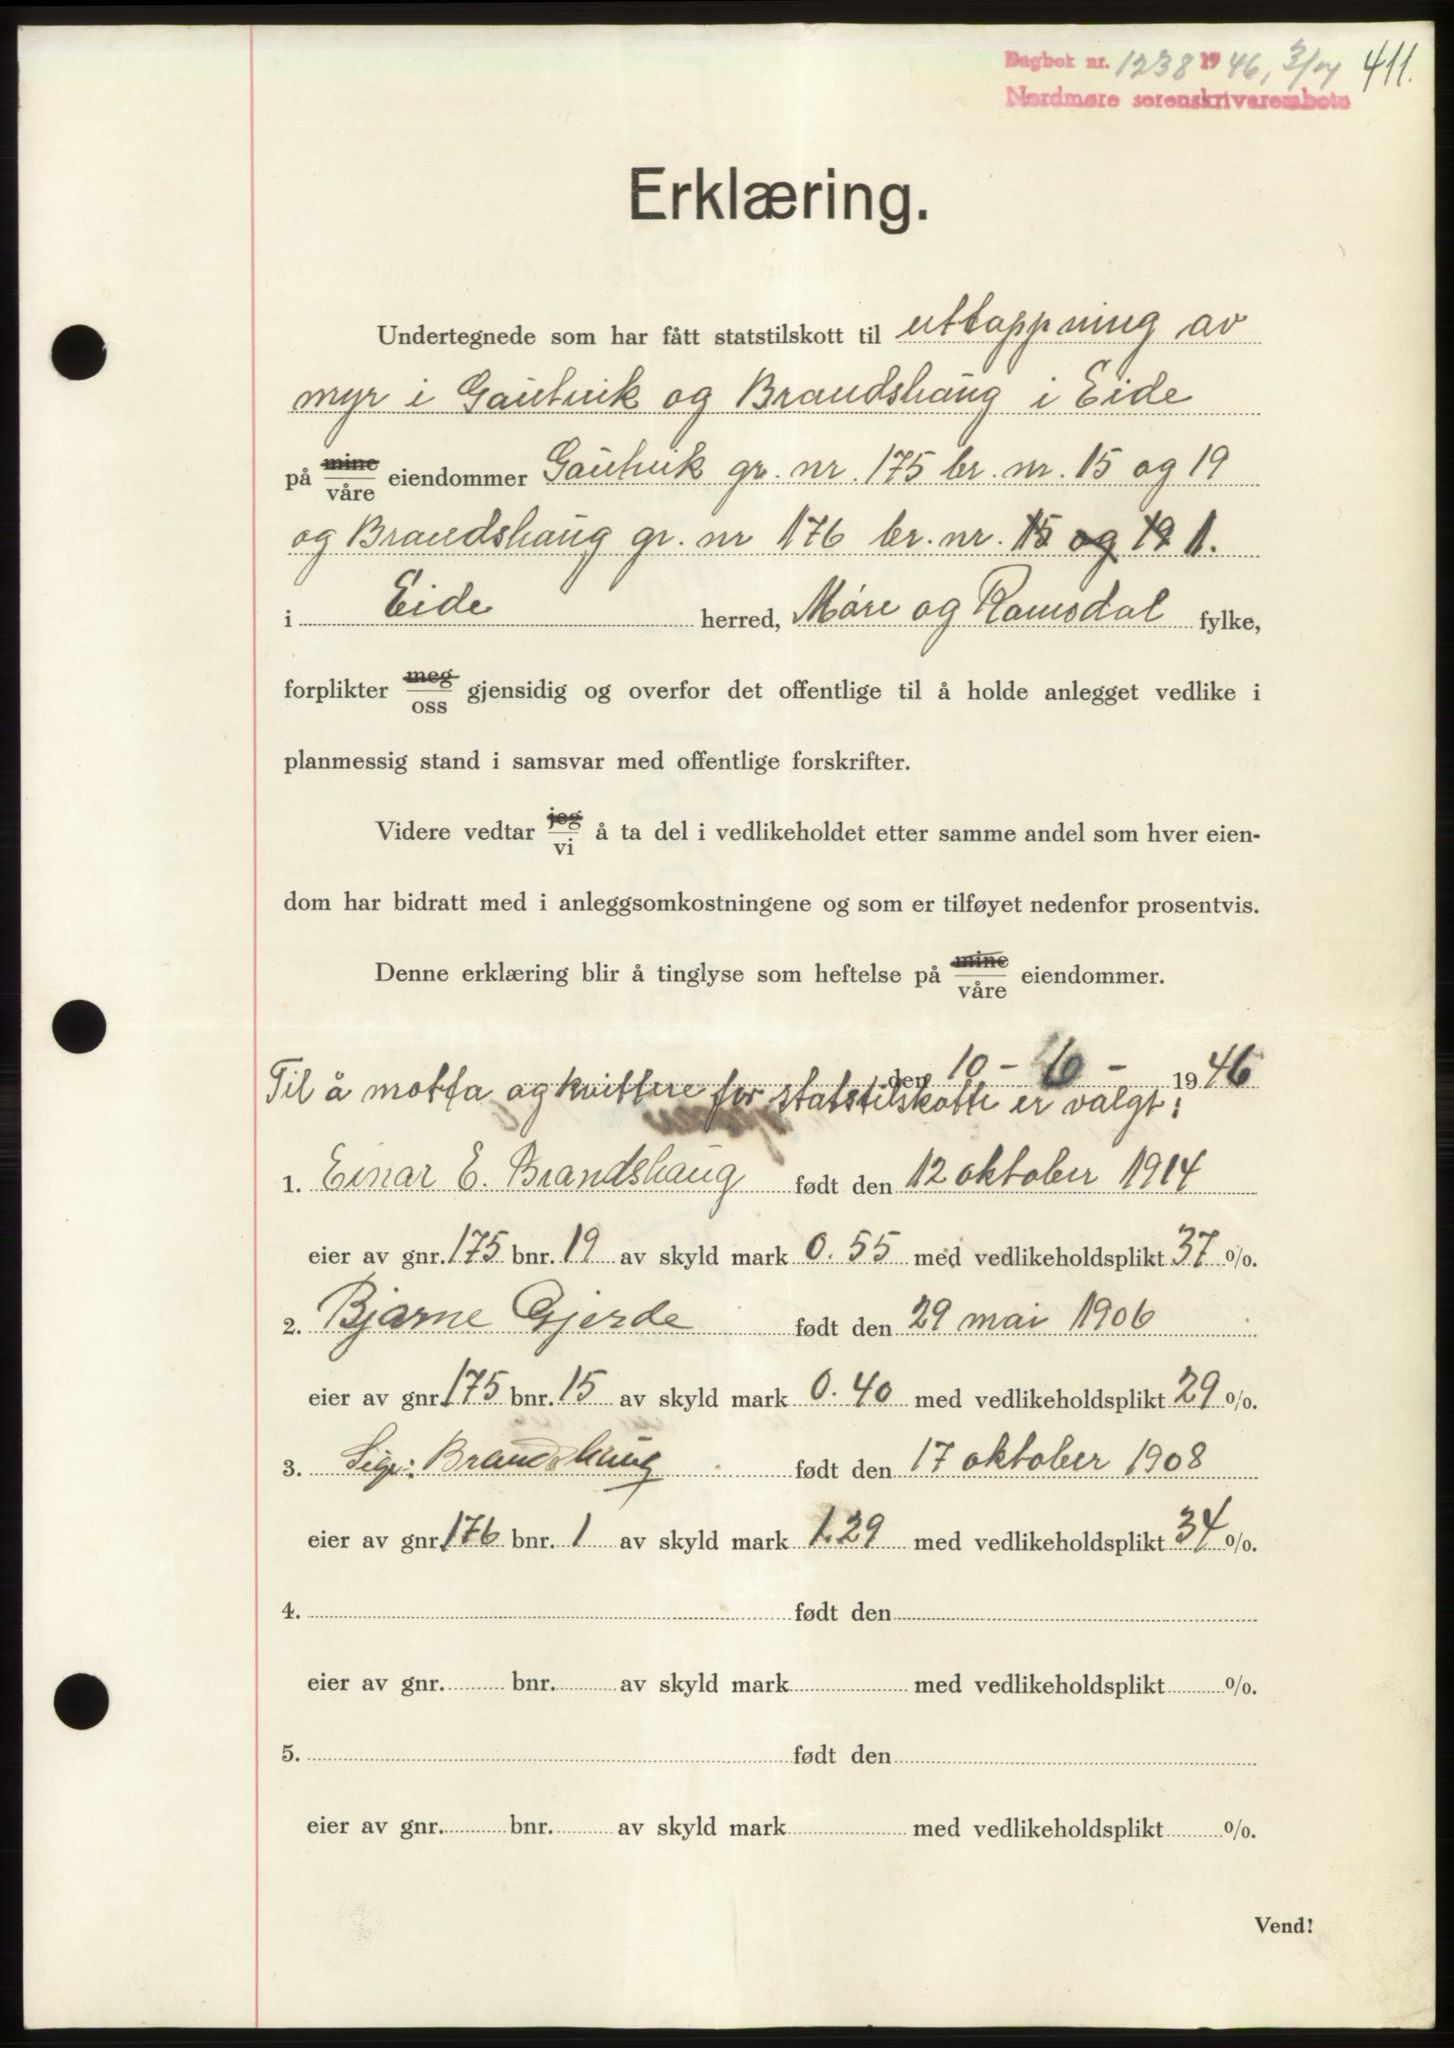 Dagbok nr. 1238 1946, 3/7 411.
Nordmøre sorenskriverembete
Erklæring.
Undertegnede som har fått statstilskott til uttappning av
myr i Gautvik og Brandshaug i Eide
på mine/våre eiendommer Gautvik gr. nr. 175 br. nr. 15 og 19
og Brandshaug gr. nr 176 br. nr. 15 og 19 1.
i Eide herred, Møre og Romsdal fylke,
forplikter meg/oss gjensidig og overfor det offentlige til å holde anlegget vedlike i
planmessig stand i samsvar med offentlige forskrifter.
Videre vedtar jeg/vi å ta del i vedlikeholdet etter samme andel som hver eien-
dom har bidratt med i anleggsomkostningene og som er tilføyet nedenfor prosentvis.
Denne erklæring blir å tinglyse som heftelse på mine/våre eiendommer.
den 10 - 6 - 1946
Til å motta og kvittere for statstilskottet er valgt:
1. Einar E. Brandshaug født den 12 oktober 1914
eier av gnr. 175 bnr. 19 av skyld mark 0.55 med vedlikeholdsplikt 37 %.
2. Bjarne Gjerde født den 29 mai 1906
eier av gnr. 175 bnr. 15 av skyld mark 0.40 med vedlikeholdsplikt 29 %.
3. Sigr: Brandshaug født den 17 oktober 1908
eier av gnr. 176 bnr. 1 av skyld mark 1.29 med vedlikeholdsplikt 34 %.
4. født den
eier av gnr. bnr. av skyld mark med vedlikeholdsplikt %.
5. født den
eier av gnr. bnr. av skyld mark med vedlikeholdsplikt %.
Vend!